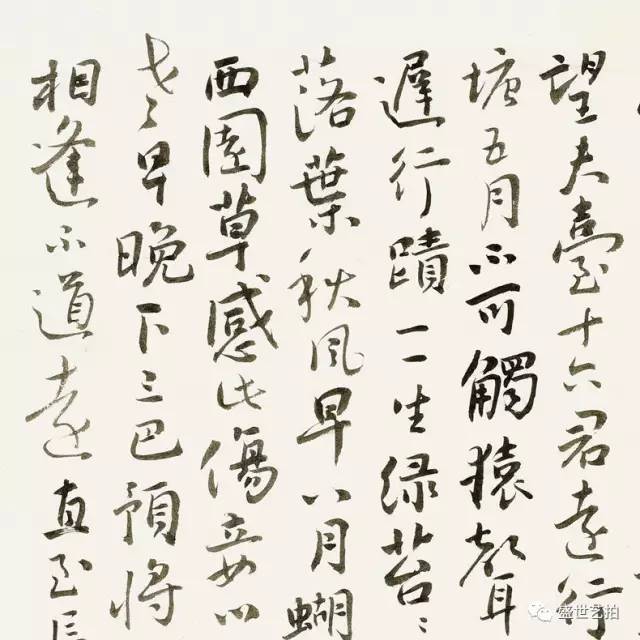 望夫臺十六君遠行
塘五月不可觸猿聲
遲行蹟一一生綠苔〻
落葉秋風早八月蝴
西園草感此傷妾心
老〻早晚下三巴預將
相逢不道遠直至長
盛世艺拍